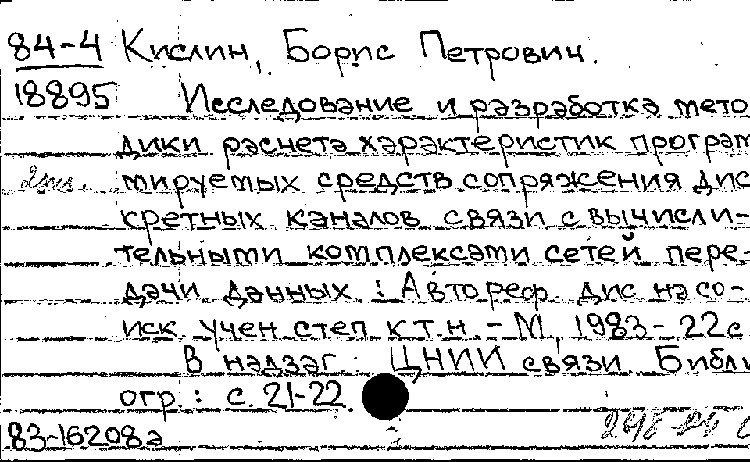 84-4 Кислин, Борис Петрович.
18895 Исследование и разработка мето
дики расчета характеристик програм
2 экз. мируемых средств сопряжения дис
кретных каналов связи с вычисли-
тельными комплексами сетей пере-
дачи данных : Автореф. дис на со-
иск. учен степ к.т.н. - М, 1983 - 22с
В надзаг. ЦНИИ связи. Библи
огр. : с. 21-22
83-16208а